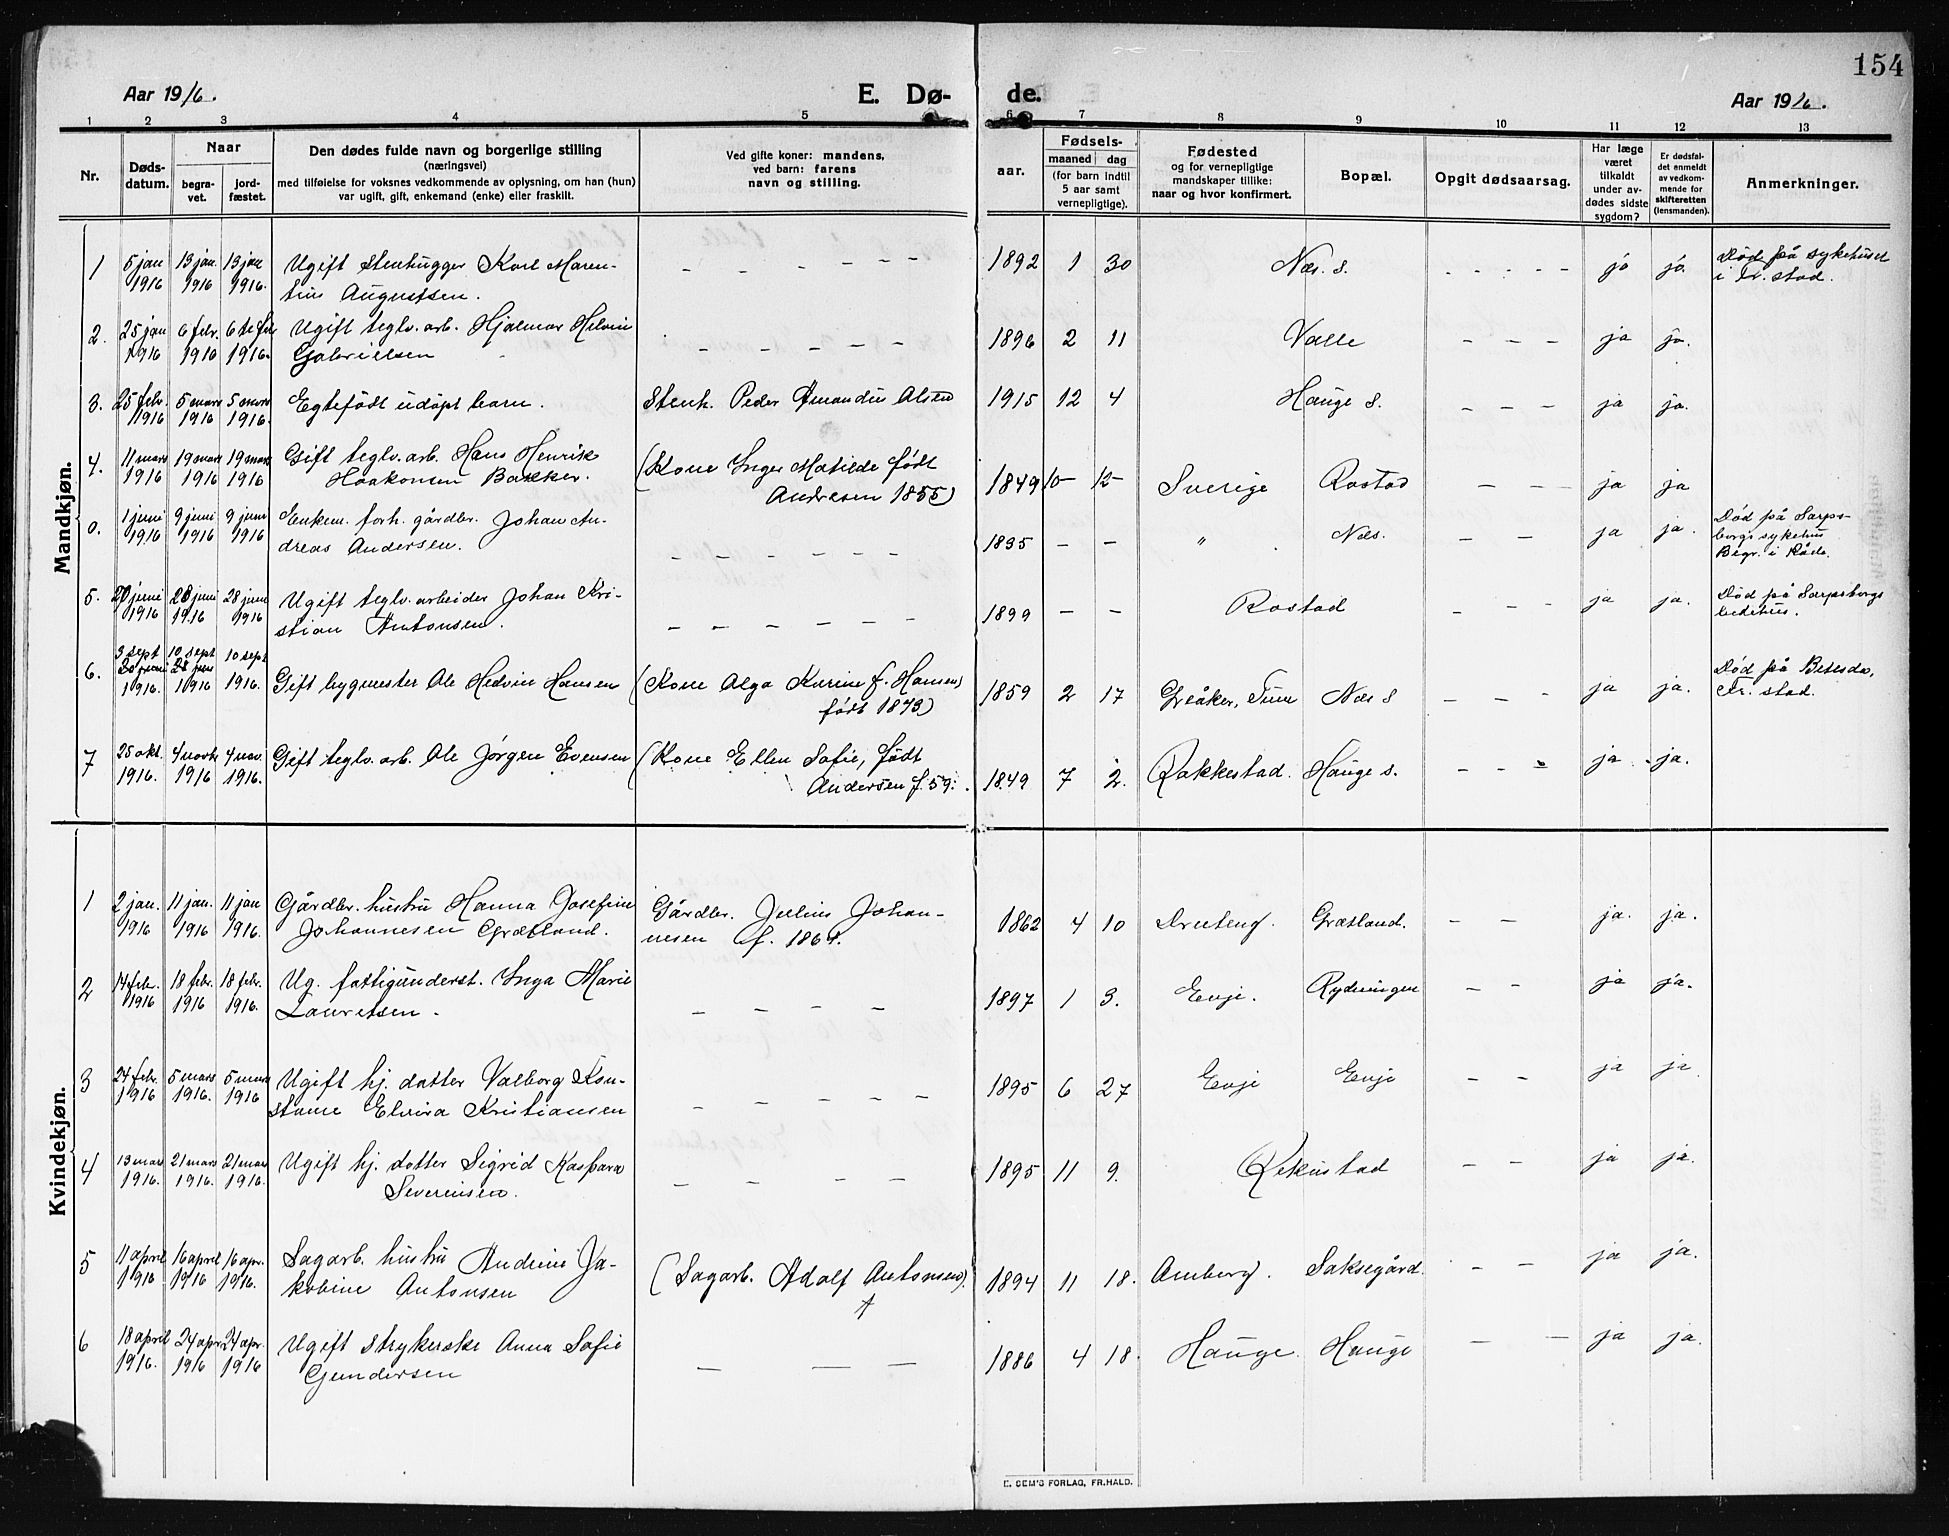 154
Aar 1916.
E. Dø-
de.
Aar 1916.
1 2 3 4 5 6 7 8 9 10 11 12 13
Nr.
Døds-
datum.
Naar
begra-
vet.
jord-
fæstet.
Den dødes fulde navn og borgerlige stilling
(næringsvei)
med tilføielse for voksnes vedkommende av oplysning, om han (hun)
var ugift, gift, enkemand (enke) eller fraskilt.
Ved gifte koner: mandens,
ved barn: farens
navn og stilling.
aar.
Fødsels-
maaned dag
(for barn indtil
5 aar samt
vernepligtige).
Fødested
og for vernepligtige
mandskaper tillike:
naar og hvor konfirmert.
Bopæl.
Opgit dødsaarsag.
Har læge
været
tilkaldt
under av-
dødes sidste
sygdom?
Er dødsfal-
det anmeldt
av vedkom-
mende for
skifteretten
(lensmanden).
Anmerkninger.
Mandkjøn.
1 5 jan 13 jan. 13 jan Ugift Stenhugger Karl Maren- – – – – – – 1892 1 30 Næs. s. – – – – jo jo. Død på sykehuset
1916 1916 1916. tius Augustsen. i Fr. stad.
2. 25 jan 6 febr. 6te feb Ugift teglv. arb. Hjalmar Helvin 1896 2 11 Valle – – – ja ja.
1916 1916 1916. Gabrielsen – – – – – –
3. 25 febr. 5 mars 5 mars Egtefödt udøpt barn. Stenh. Peder Amandus Olsen 1915 12 4 Hauge s. – – – ja ja.
1916 1916 1916.
4. 11 mars 19 mars 19 mars Gift teglv. arb. Hans Henrik (Kone Inger Matilde født 1849 10 12 Sverige Rostad – – – ja ja
1916 1916 1916 Haakonsen Bakker. Andresen 1855)
0. 1 juni 9 juni 9 juni Enkem. forh. gårdbr. Johan An- 1835 – – " Næs. – – – ja ja. Død på Sarps-
1916 1916 1916 dreas Andersen. – – – – – – borgs sykehus
Begr. i Råde.
5. 20 juni 28 juni 28 juni Ugift teglv. arbeider Johan Kri- 1899 – – Rostad – – – ja ja. Død på Sarpsborgs
1916 1916 1916 stian Antonsen. – – – – – –
6. 3 sept 10 sept 10 sept
20 juni 28 juni
1916. 1916 1916. Gift bygmester Ole Hedvin Hansen (Kone Olga Karine f. Hansen 1859 2 17 Greåker, Tune Næs s – – – ja ja. Død på Betesda,
født 1873) Fr. stad.
7 25 okt. 4 novb 4 nov. Gift teglv. arb. Ole Jörgen Evensen (Kone Ellen Sofie, født 1849 7 2. Rakkestad. Hauge s. – – – ja ja.
1916. 1916 1916. Andersen f. 59.
Kvindekjøn.
1 2 jan. 11 jan. 11 jan Gårdbr. hustru Hanna Josefine Gårdbr. Julius Johan- 1862 4 10 Grætland. – – ja. ja.
1916 1916 1916. Johannesen Grætland. nesen f. 1864.
2 14 febr. 18 febr. 18 febr. Ug. fattigunderst. Inga Marie 1897 1 3. Evje. Rydningen – – ja ja.
1916 1916 1916. Lauretsen. – – – –
3 24 febr. 5 mars 5 mars Ugift hj. datter Valborg Kon- 1895 6 27 Evje Evje – – ja ja
1916 1916. 1916 stanse Elvira Kristiansen – – – – –
4 13 mars 21 mars 21 mars Ugift hj. datter Sigrid Kaspara 1895 11 9. Rekustad – – ja ja.
1916. 1916. 1916. Severinsen. – – – –
5 11 april 16 april 16 apr. Sagarb. hustru Andrine Ja- (Sagarb. Adolf Antonsen) 1894 11 18. Amberg. Saksegård. – – ja ja.
1916 1916 1916. kobine Antonsen
6 18 april 24 apr. 24 apr. Ugift strykerske Anna Sofie – – – 1886 4 18. Hauge. Hauge – – ja ja.
1916. 1916 1916 Gundersen
E. SEM'S FORLAG, FR.HALD.